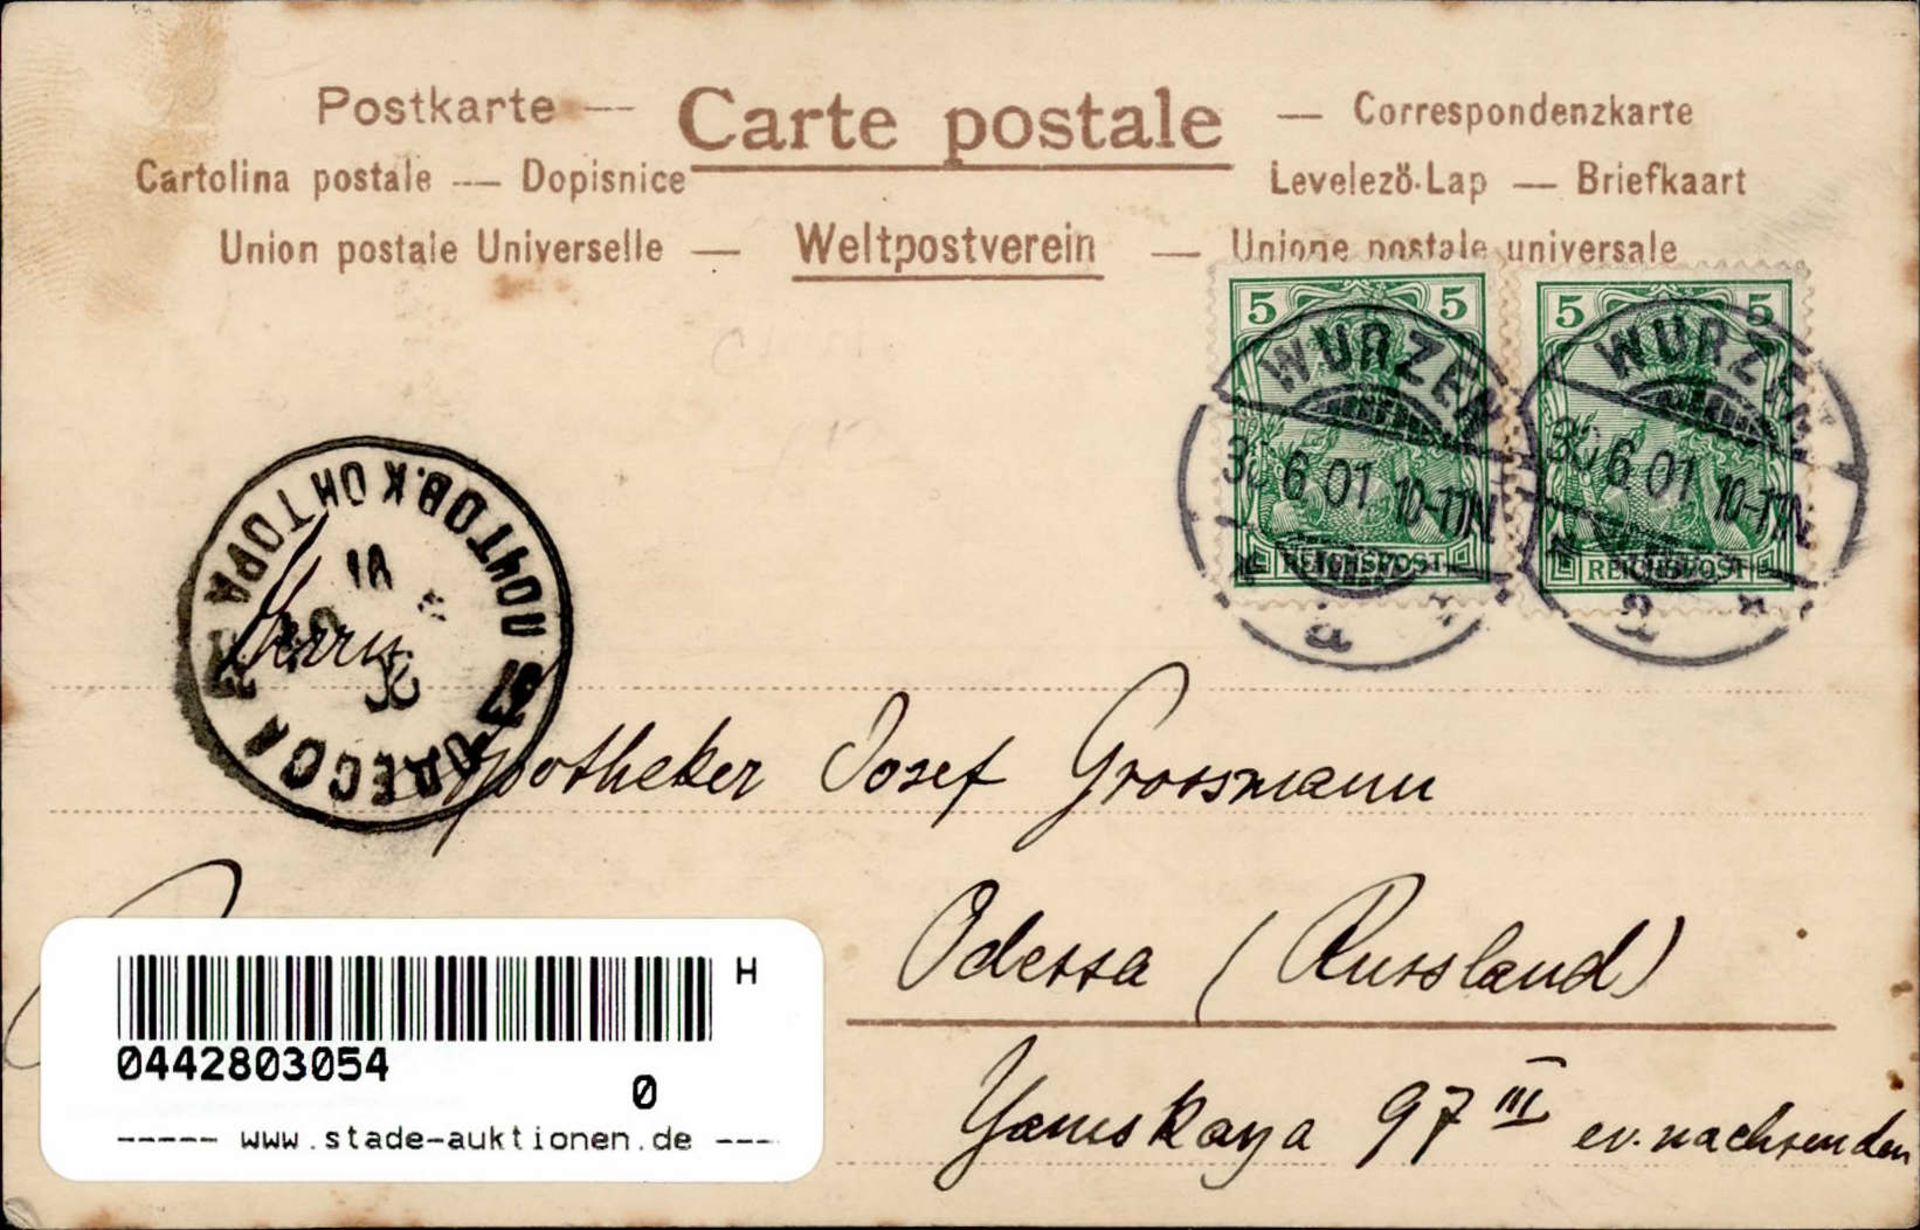 Postkarte — Carte postale — Correspondenzkarte
Cartolina postale — Dopisnice Levelezö-Lap — Briefkaart
Union postale Universelle — Weltpostverein — Unione postale universale
5 5 5 5
WURZEN WURZEN
30 6 01 10-11N 30 6 01 10-11N
REICHSPOST REICHSPOST
a a
ОДЕССА ПОЧТОВ. КОНТОРА
Herrn
Apotheker Josef Grossmann
Odessa (Russland)
Yamskaya 97 III ev. nachsenden
H
0442803054
0
----- www.stade-auktionen.de ----